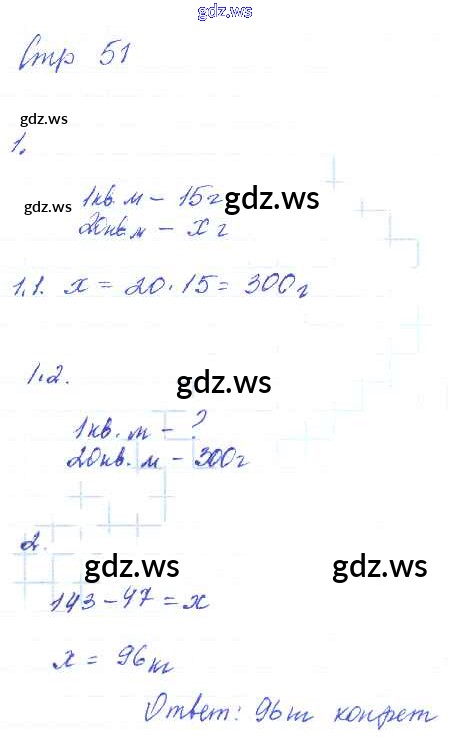 gdz.ws
Стр 51
gdz.ws
1.
1кв.м – 15г gdz.ws
gdz.ws
20кв.м – х г
1.1. х = 20 · 15 = 300г
1.2.
gdz.ws
1кв. м – ?
20кв. м – 300г
2.
gdz.ws gdz.ws
143 – 47 = х
х = 96кг
Ответ: 96кг конфет